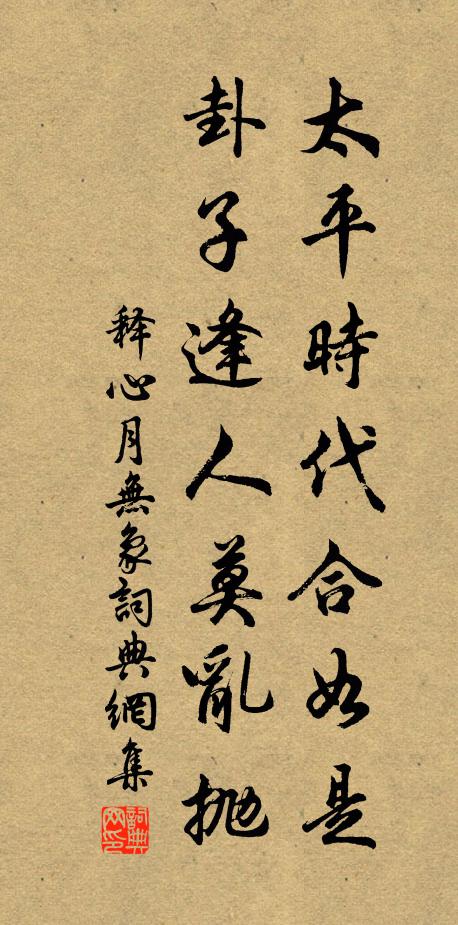 太平時代合如是
卦子逢人莫亂拋
释心月無象詞典網集
詞典網印